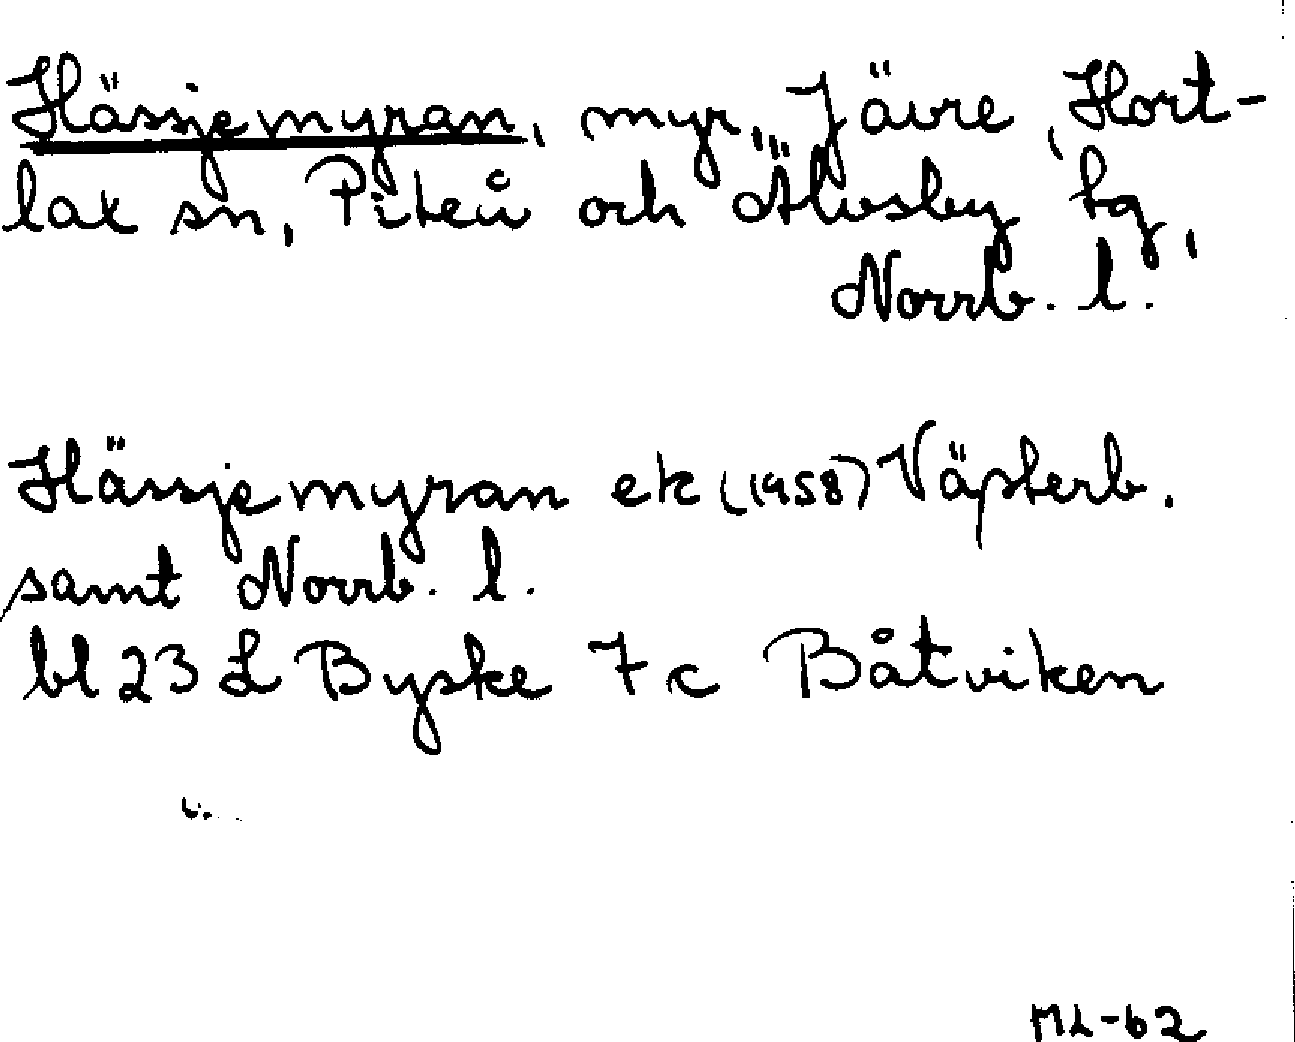 Hässjemyran, myr, Jävre, Hort-
lax sn, Piteå och Älvsby tg,
Norrb. l.
Hässjemyran ek (1958) Västerb.
samt Norrb. l.
bl 23 L Byske 7 c Båtviken
ML-62